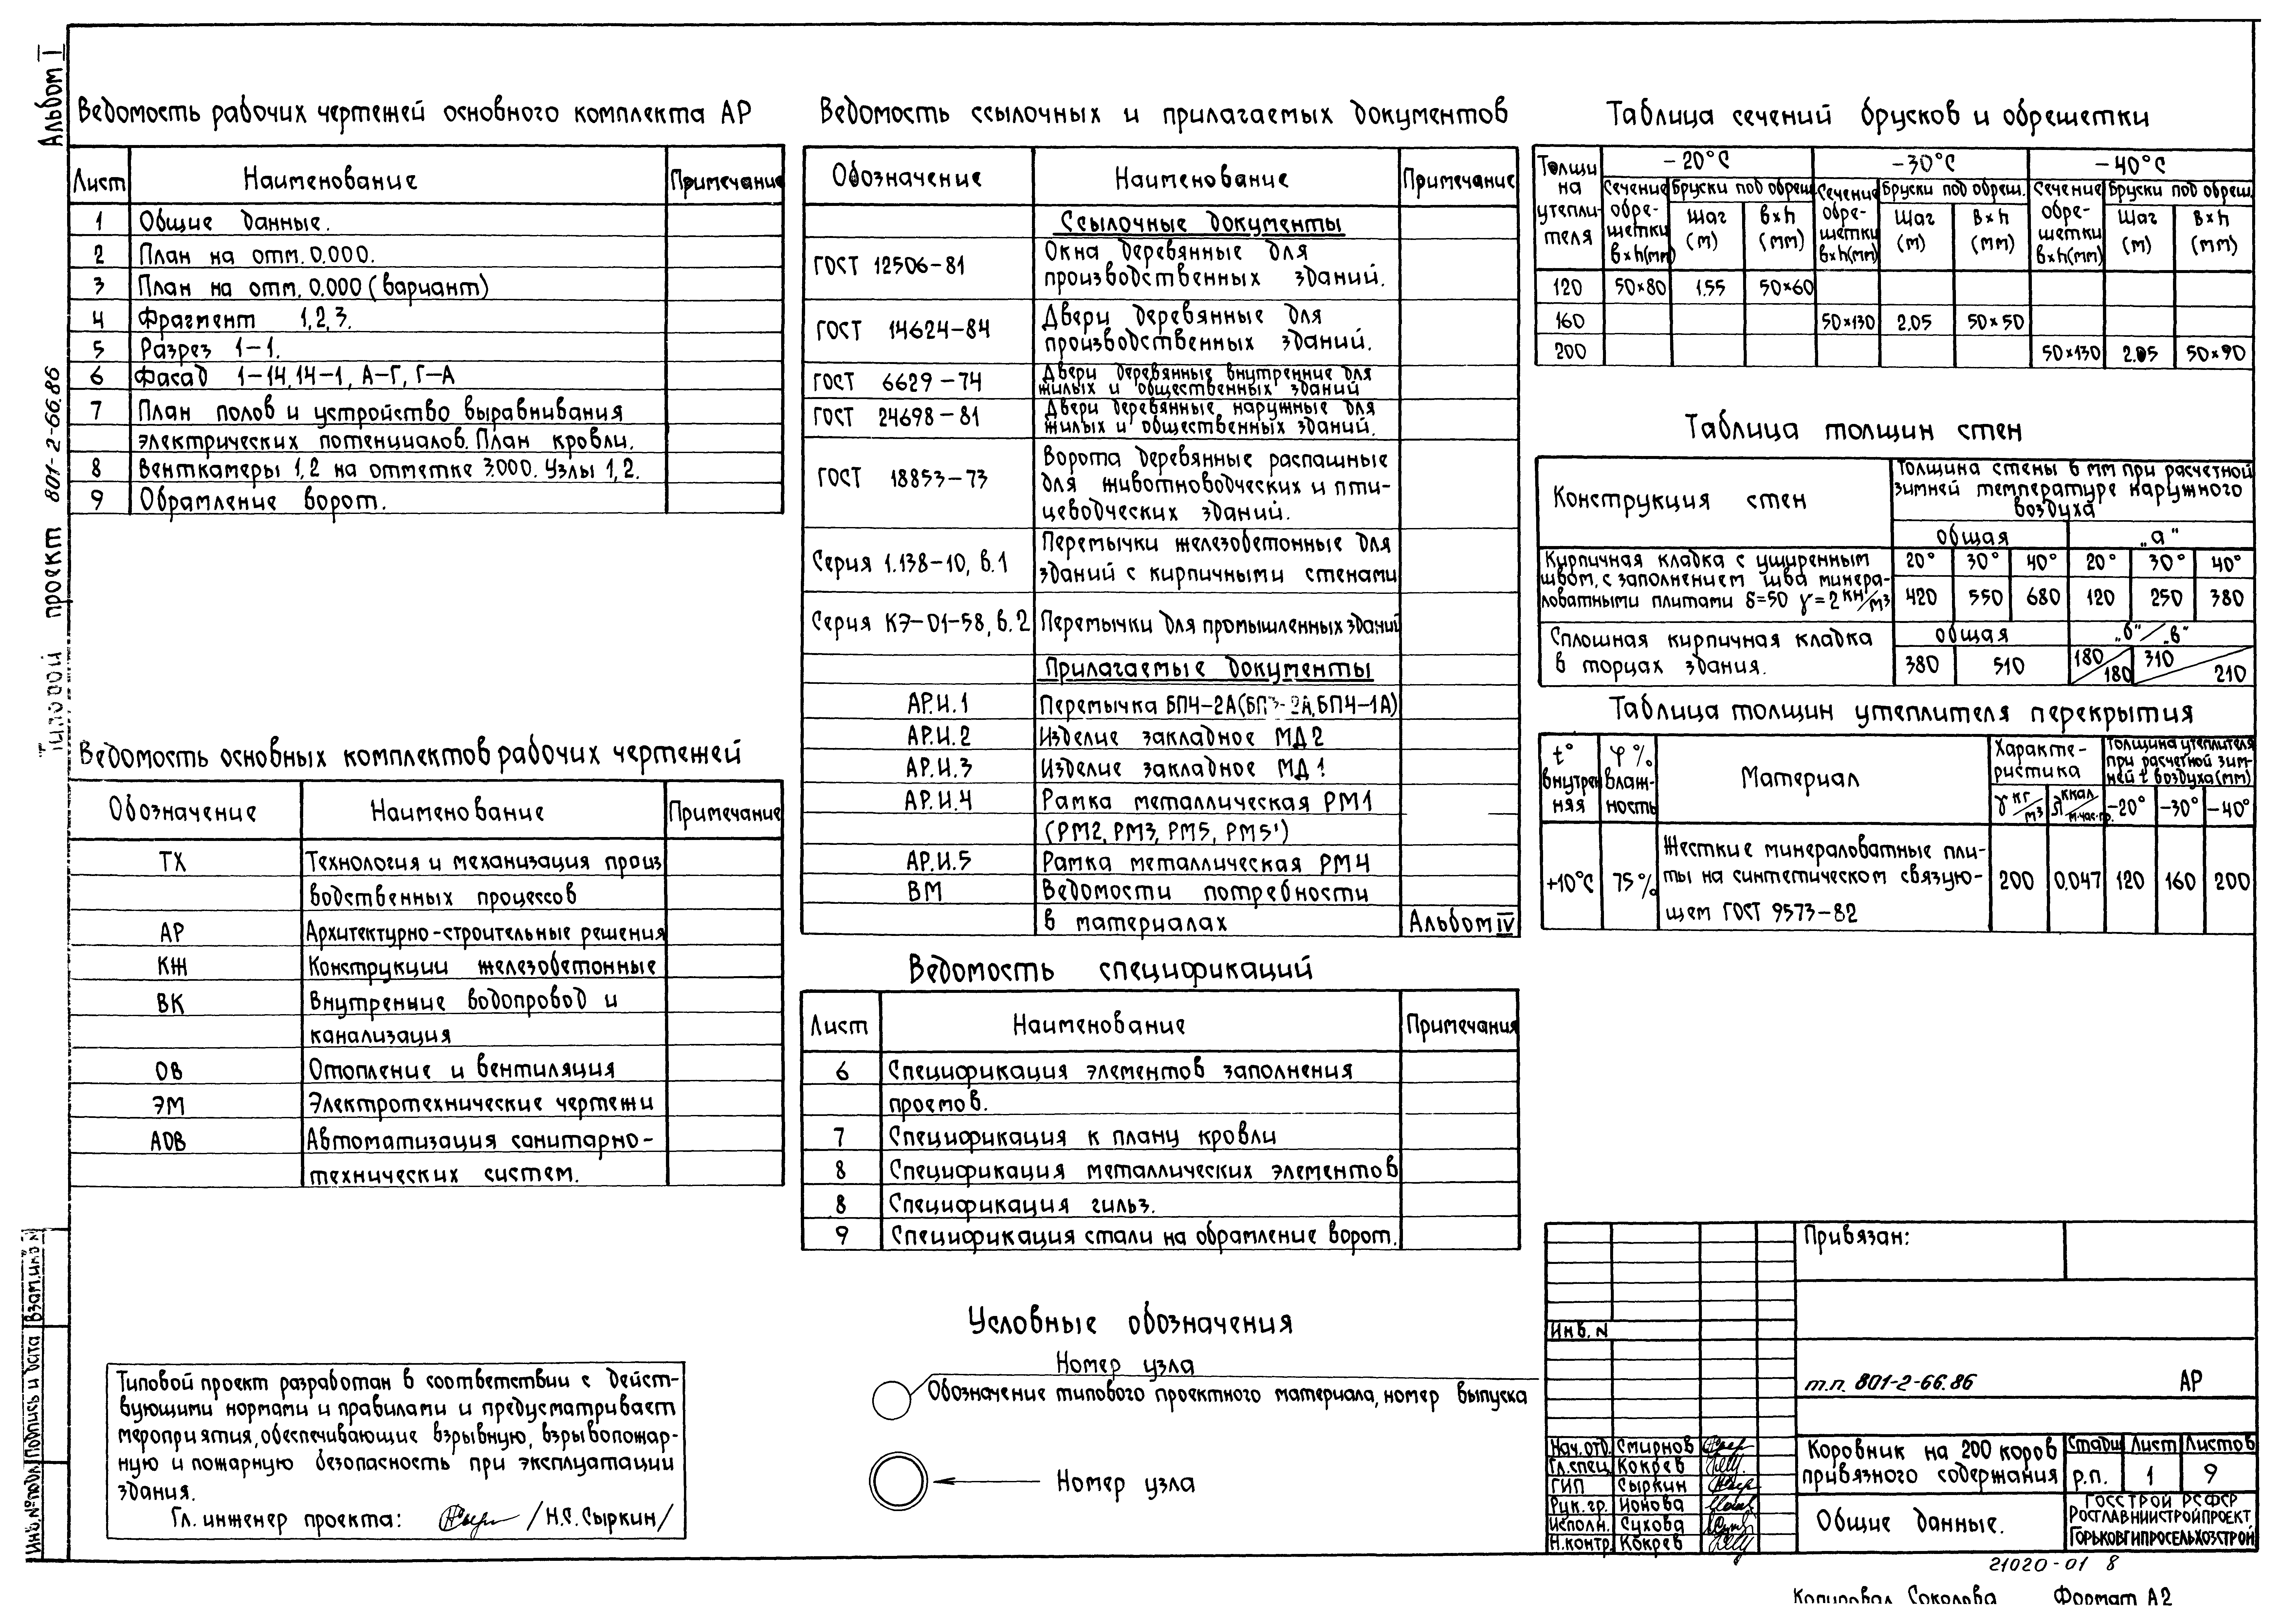 Альбом I
Типовой проект 801-2-66.86
Ведомость рабочих чертежей основного комплекта АР
Лист Наименование Примечание
1 Общие данные.
2 План на отм. 0.000.
3 План на отм. 0.000 (вариант)
4 Фрагмент 1,2,3.
5 Разрез 1-1.
6 Фасад 1-14, 14-1, А-Г, Г-А
7 План полов и устройство выравнивания
электрических потенциалов. План кровли.
8 Венткамеры 1,2 на отметке 3.000. Узлы 1,2.
9 Обрамление ворот.
Ведомость основных комплектов рабочих чертежей
Обозначение Наименование Примечание
ТХ Технология и механизация произ
водственных процессов
АР Архитектурно-строительные решения
КЖ Конструкции железобетонные
ВК Внутренние водопровод и
канализация
ОВ Отопление и вентиляция
ЭМ Электротехнические чертежи
АОВ Автоматизация санитарно-
технических систем.
Типовой проект разработан в соответствии с дейст-
вующими нормами и правилами и предусматривает
мероприятия, обеспечивающие взрывную, взрывопожар-
ную и пожарную безопасность при эксплуатации
здания.
Гл. инженер проекта: /Н.С. Сыркин/
Ведомость ссылочных и прилагаемых документов
Обозначение Наименование Примечание
Ссылочные документы
ГОСТ 12506-81 Окна деревянные для
производственных зданий.
ГОСТ 14624-84 Двери деревянные для
производственных зданий.
ГОСТ 6629-74 Двери деревянные внутренние для
жилых и общественных зданий
ГОСТ 24698-81 Двери деревянные наружные для
жилых и общественных зданий.
ГОСТ 18853-73 Ворота деревянные распашные
для животноводческих и пти-
цеводческих зданий.
Серия 1.138-10, в.1 Перемычки железобетонные для
зданий с кирпичными стенами
Серия КЭ-01-58, в.2 Перемычки для промышленных зданий
Прилагаемые документы
АР.И.1 Перемычка БП4-2А(БП3-2А, БП4-1А)
АР.И.2 Изделие закладное МД2
АР.И.3 Изделие закладное МД1
АР.И.4 Рамка металлическая РМ1
(РМ2, РМ3, РМ5, РМ5')
АР.И.5 Рамка металлическая РМ4
ВМ Ведомости потребности
в материалах Альбом IV
Ведомость спецификаций
Лист Наименование Примечания
6 Спецификация элементов заполнения
проемов.
7 Спецификация к плану кровли
8 Спецификация металлических элементов
8 Спецификация гильз.
9 Спецификация стали на обрамление ворот.
Условные обозначения
Номер узла
Обозначение типового проектного материала, номер выпуска
Номер узла
Таблица сечений брусков и обрешетки
Толщи на утепли- теля -20°С -30°С -40°С
Сечение обре- шетки вxh(мм) Бруски под обреш. Сечение обре- шетки вxh(мм) Бруски под обреш. Сечение обре- шетки вxh(мм) Бруски под обреш.
Шаг (м) вxh (мм) Шаг (м) вxh (мм) Шаг (м) вxh (мм)
120 50×80 1.55 50×60
160 50×130 2.05 50×50
200 50×130 2.05 50×90
Таблица толщин стен
Конструкция стен Толщина стены в мм при расчетной
зимней температуре наружного
воздуха
общая „а"
20° 30° 40° 20° 30° 40°
Кирпичная кладка с уширенным
швом, с заполнением шва минера-
ловатными плитами δ=50 γ=2 кн/м3 420 550 680 120 250 380
Сплошная кирпичная кладка общая „б"/„в"
в торцах здания. 380 510 180/180 310/210
Таблица толщин утеплителя перекрытия
t° внутрен няя φ% влаж- ность Материал Характе- ристика Толщина утеплителя при расчетной зим- ней t воздуха (мм)
γ кг/м3 λ ккал/м.час.гр. -20° -30° -40°
+10°С 75% Жесткие минераловатные пли- 200 0.047 120 160 200
ты на синтетическом связую-
щем ГОСТ 9573-82
Привязан:
Инв. N
т.п. 801-2-66.86 АР
Нач.отд. Смирнов
Гл.спец. Кокрев
ГИП Сыркин
Рук.гр. Ионова
Исполн. Сухова
Н.контр. Кокрев
Коровник на 200 коров
привязного содержания
Стадия Лист Листов
р.п. 1 9
Общие данные.
ГОССТРОЙ РСФСР
РОСГЛАВНИИСТРОЙПРОЕКТ
ГОРЬКОВГИПРОСЕЛЬХОЗСТРОЙ
21020-01 8
Копировал Соколова Формат А2
Инв.№ подл. Подпись и дата Взам.инв.N